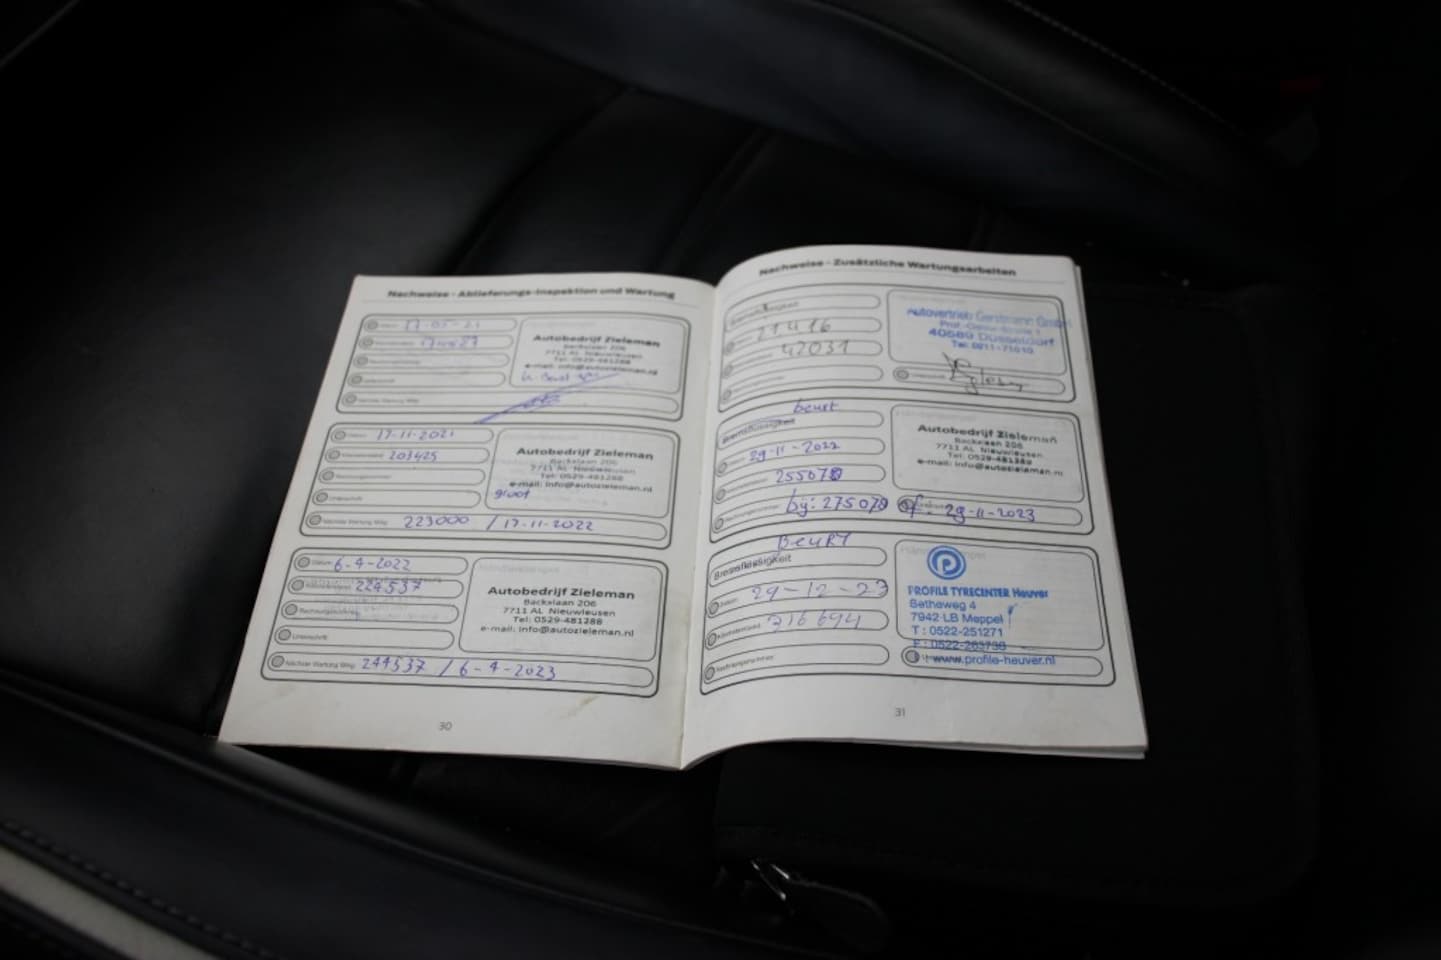 Nachweise - Ablieferungs-Inspektion und Wartung
17-05-21
Autobedrijf Zieleman
Backxlaan 206
7711 AL Nieuwleusen
Tel: 0529-481288
e-mail: info@autozieleman.nl
Nächste Wartung fällig:
17-11-2021
203425
Rechnungsnummer
Unterschrift
Autobedrijf Zieleman
Backxlaan 206
7711 AL Nieuwleusen
Tel: 0529-481288
e-mail: info@autozieleman.nl
groot
Nächste Wartung fällig: 223000 / 17-11-2022
Datum 6-4-2022
Kilometerstand 224537
Rechnungsnummer
Unterschrift
Autobedrijf Zieleman
Backxlaan 206
7711 AL Nieuwleusen
Tel: 0529-481288
e-mail: info@autozieleman.nl
Nächste Wartung fällig: 244537 / 6-4-2023
30
Nachweise - Zusätzliche Wartungsarbeiten
Bremsflüssigkeit
21.4.16
42031
Autovertrieb Gerstmann GmbH
40589 Düsseldorf
beurt
Bremsflüssigkeit
29-11-2022
255078
Rechnungsnummer bij: 275078 of: 29-11-2023
Autobedrijf Zieleman
Backxlaan 206
7711 AL Nieuwleusen
Tel: 0529-481288
e-mail: info@autozieleman.nl
BEURT
Bremsflüssigkeit
Datum 29-12-23
Kilometerstand 316694
Rechnungsnummer
PROFILE TYRECENTER Heuver
Betheweg 4
7942 LB Meppel
T: 0522-251271
F: 0522-263738
I: www.profile-heuver.nl
31